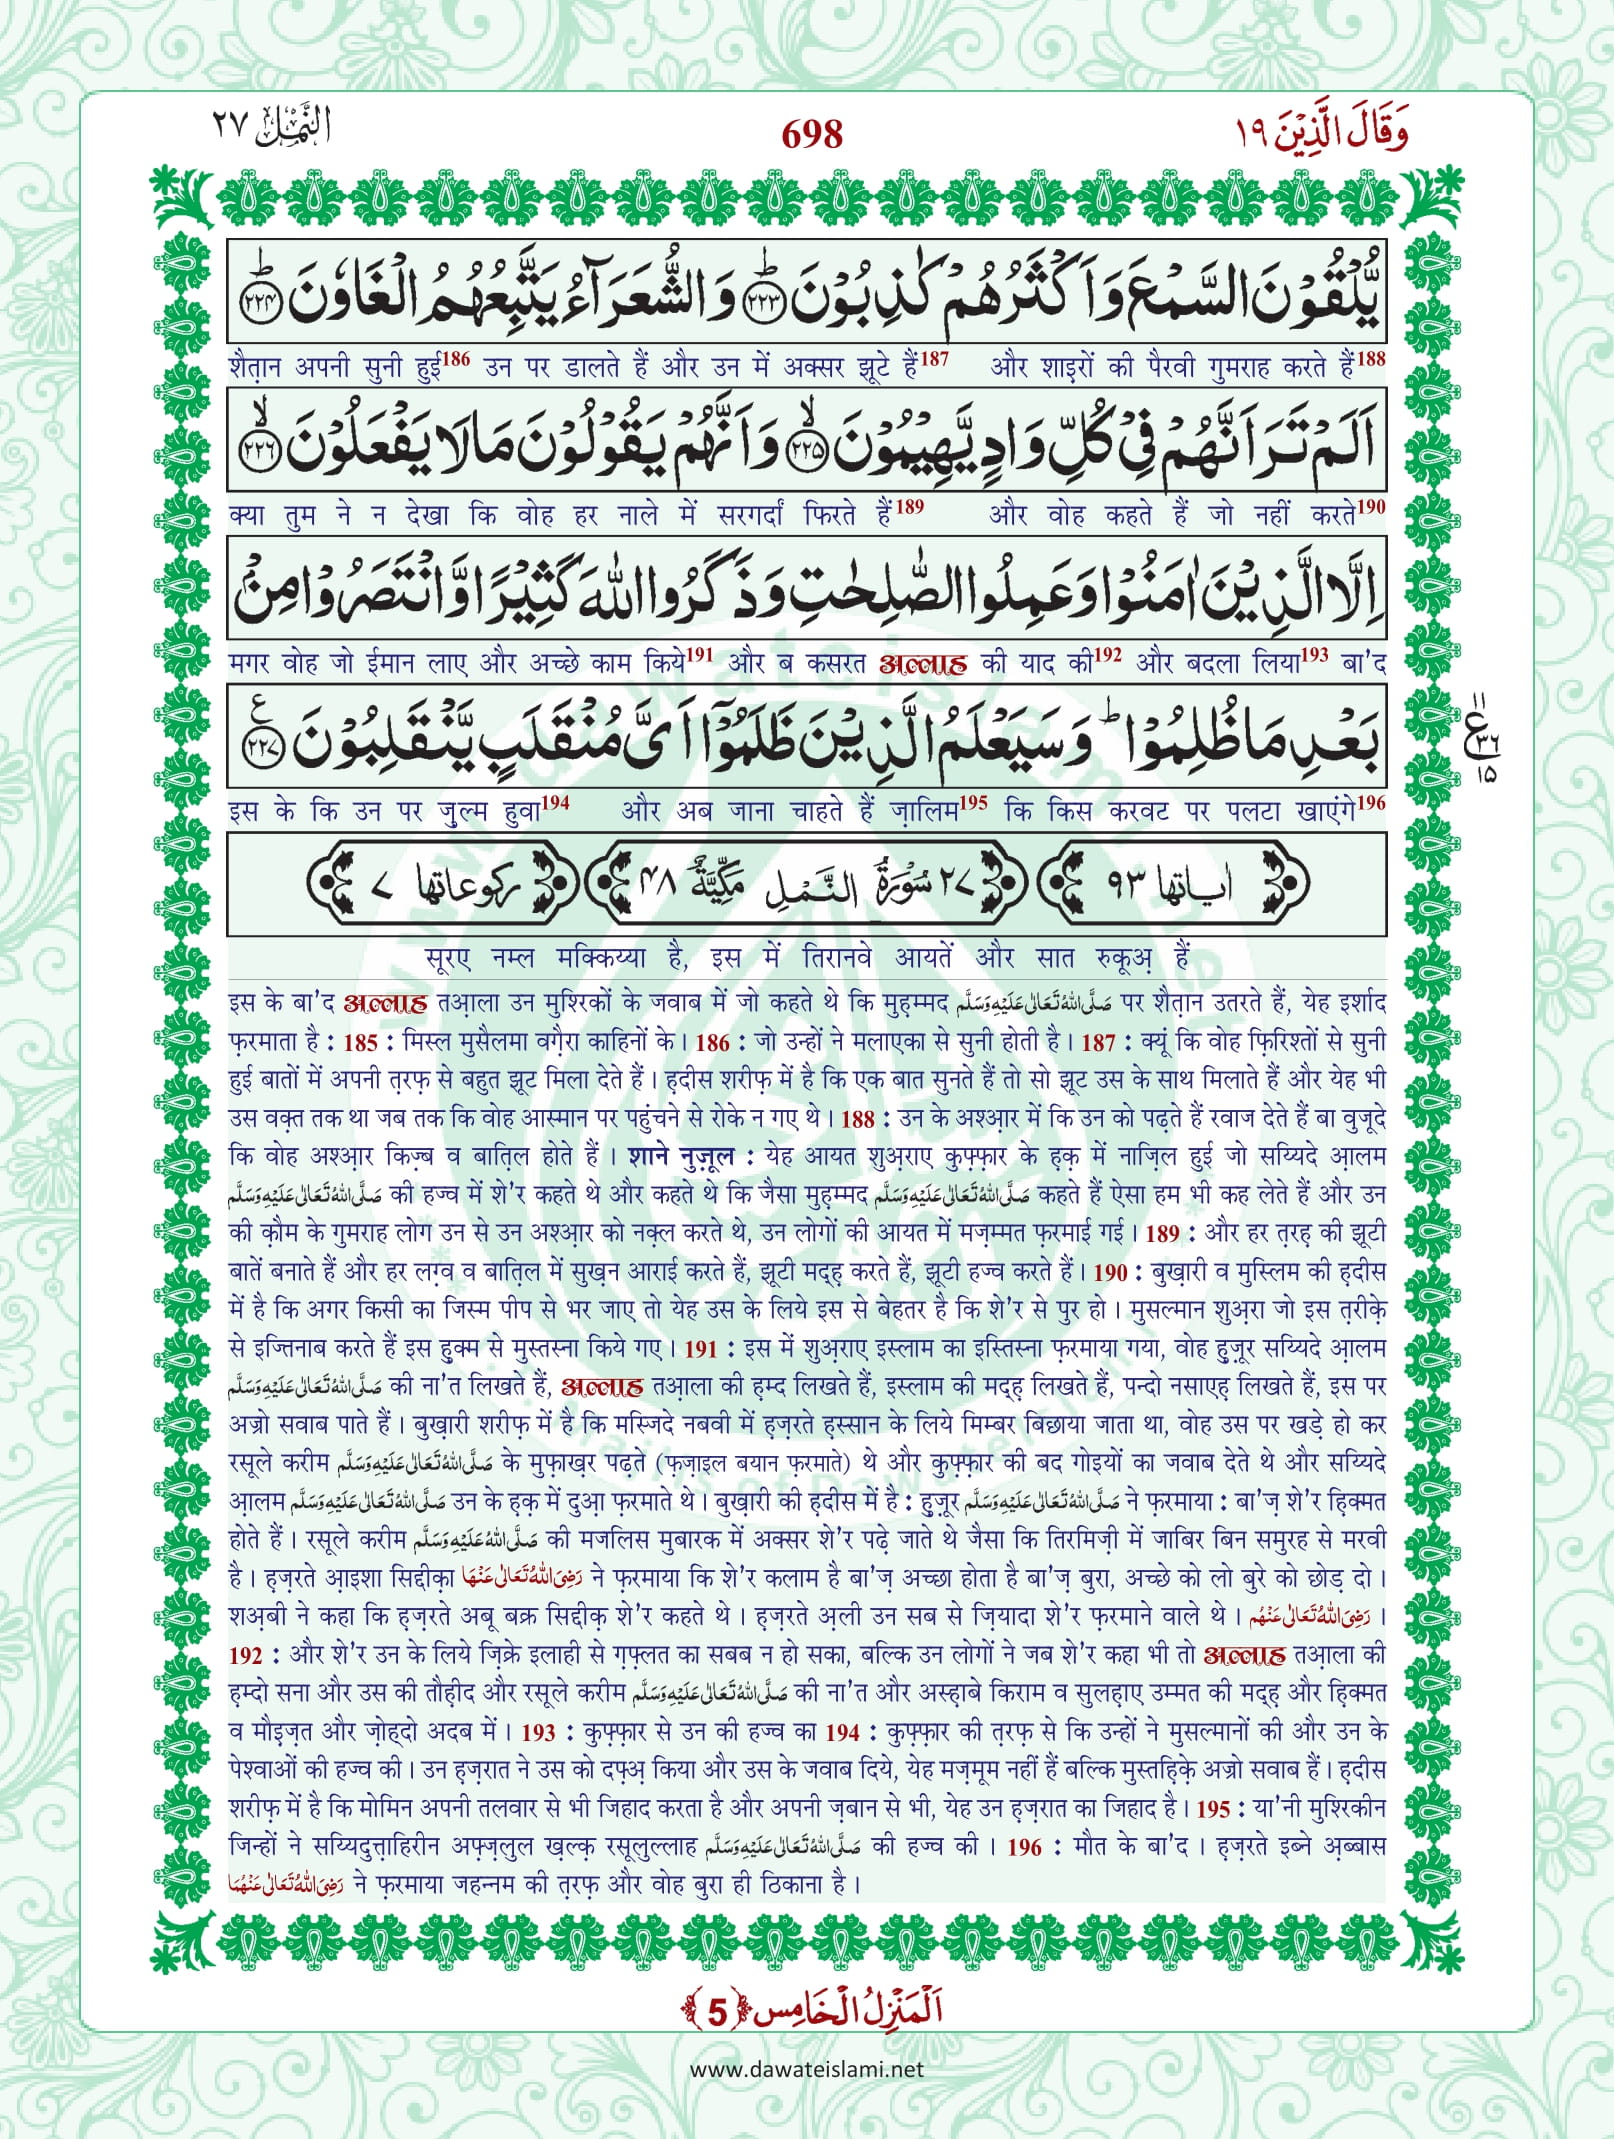 وَقَالَ الَّذِیْنَ ۱۹
698
النَّمْل ۲۷
یُّلْقُوْنَ السَّمْعَ وَاَكْثَرُهُمْ كٰذِبُوْنَ ؕ﴿۲۲۳﴾ وَالشُّعَرَآءُ یَتَّبِعُهُمُ الْغَاوٗنَ ؕ﴿۲۲۴﴾
शैत़ान अपनी सुनी हुई186 उन पर डालते हैं और उन में अक्सर झूटे हैं187 और शाइ़रों की पैरवी गुमराह करते हैं188
اَلَمْ تَرَ اَنَّهُمْ فِیْ كُلِّ وَادٍ یَّهِیْمُوْنَ ۙ﴿۲۲۵﴾ وَاَنَّهُمْ یَقُوْلُوْنَ مَا لَا یَفْعَلُوْنَ ۙ﴿۲۲۶﴾
क्या तुम ने न देखा कि वोह हर नाले में सरगर्दां फिरते हैं189 और वोह कहते हैं जो नहीं करते190
اِلَّا الَّذِیْنَ اٰمَنُوْا وَعَمِلُوا الصّٰلِحٰتِ وَذَكَرُوا اللّٰهَ كَثِیْرًا وَّانْتَصَرُوْا مِنْۢ
मगर वोह जो ईमान लाए और अच्छे काम किये191 और ब कसरत अल्लाह की याद की192 और बदला लिया193 बा'द
بَعْدِ مَا ظُلِمُوْا ؕ وَسَیَعْلَمُ الَّذِیْنَ ظَلَمُوْۤا اَیَّ مُنْقَلَبٍ یَّنْقَلِبُوْنَ ﴿۲۲۷﴾ ع
۱۱ ع ۳۶ ۱۵
इस के कि उन पर ज़ुल्म हुवा194 और अब जाना चाहते हैं ज़ालिम195 कि किस करवट पर पलटा खाएंगे196
اٰیاتها ۹۳ ۲۷ سُوْرَةُ النَّمْلِ مَكِّیَّةٌ ۴۸ ركوعاتها ۷
सूरए नम्ल मक्किय्या है, इस में तिरानवे आयतें और सात रुकूअ़ हैं
इस के बा'द अल्लाह तआ़ला उन मुश्रिकों के जवाब में जो कहते थे कि मुह़म्मद صَلَّی اللهُ تَعَالٰی عَلَیْهِ وَسَلَّم पर शैत़ान उतरते हैं, येह इर्शाद
फ़रमाता है : 185 : मिस्ल मुसैलमा वग़ैरा काहिनों के। 186 : जो उन्हों ने मलाएका से सुनी होती है। 187 : क्यूं कि वोह फ़िरिश्तों से सुनी
हुई बातों में अपनी त़रफ़ से बहुत झूट मिला देते हैं। ह़दीस शरीफ़ में है कि एक बात सुनते हैं तो सो झूट उस के साथ मिलाते हैं और येह भी
उस वक़्त तक था जब तक कि वोह आस्मान पर पहुंचने से रोके न गए थे। 188 : उन के अश्आ़र में कि उन को पढ़ते हैं रवाज देते हैं बा वुजूदे
कि वोह अश्आ़र किज़्ब व बात़िल होते हैं। शाने नुज़ूल : येह आयत शुअ़राए कुफ़्फ़ार के ह़क़ में नाज़िल हुई जो सय्यिदे आ़लम
صَلَّی اللهُ تَعَالٰی عَلَیْهِ وَسَلَّم की हज्व में शे'र कहते थे और कहते थे कि जैसा मुह़म्मद صَلَّی اللهُ تَعَالٰی عَلَیْهِ وَسَلَّم कहते हैं ऐसा हम भी कह लेते हैं और उन
की क़ौम के गुमराह लोग उन से उन अश्आ़र को नक़्ल करते थे, उन लोगों की आयत में मज़म्मत फ़रमाई गई। 189 : और हर त़रह़ की झूटी
बातें बनाते हैं और हर लग़्व व बात़िल में सुख़न आराई करते हैं, झूटी मद्ह़ करते हैं, झूटी हज्व करते हैं। 190 : बुख़ारी व मुस्लिम की ह़दीस
में है कि अगर किसी का जिस्म पीप से भर जाए तो येह उस के लिये इस से बेहतर है कि शे'र से पुर हो। मुसल्मान शुअ़रा जो इस त़रीक़े
से इज्तिनाब करते हैं इस हु़क्म से मुस्तस्ना किये गए। 191 : इस में शुअ़राए इस्लाम का इस्तिस्ना फ़रमाया गया, वोह हु़ज़ूर सय्यिदे आ़लम
صَلَّی اللهُ تَعَالٰی عَلَیْهِ وَسَلَّم की ना'त लिखते हैं, अल्लाह तआ़ला की ह़म्द लिखते हैं, इस्लाम की मद्ह़ लिखते हैं, पन्दो नसाएह़ लिखते हैं, इस पर
अज्रो सवाब पाते हैं। बुख़ारी शरीफ़ में है कि मस्जिदे नबवी में ह़ज़रते ह़स्सान के लिये मिम्बर बिछाया जाता था, वोह उस पर खड़े हो कर
रसूले करीम صَلَّی اللهُ تَعَالٰی عَلَیْهِ وَسَلَّم के मुफ़ाख़र पढ़ते (फ़ज़ाइल बयान फ़रमाते) थे और कुफ़्फ़ार की बद गोइयों का जवाब देते थे और सय्यिदे
आ़लम صَلَّی اللهُ تَعَالٰی عَلَیْهِ وَسَلَّم उन के ह़क़ में दुआ़ फ़रमाते थे। बुख़ारी की ह़दीस में है : हु़ज़ूर صَلَّی اللهُ تَعَالٰی عَلَیْهِ وَسَلَّم ने फ़रमाया : बा'ज़ शे'र ह़िक्मत
होते हैं। रसूले करीम صَلَّی اللهُ عَلَیْهِ وَسَلَّم की मजलिस मुबारक में अक्सर शे'र पढ़े जाते थे जैसा कि तिरमिज़ी में जाबिर बिन समुरह से मरवी
है। ह़ज़रते आ़इशा सिद्दीक़ा رَضِیَ اللهُ تَعَالٰی عَنْهَا ने फ़रमाया कि शे'र कलाम है बा'ज़ अच्छा होता है बा'ज़ बुरा, अच्छे को लो बुरे को छोड़ दो।
शअ़बी ने कहा कि ह़ज़रते अबू बक्र सिद्दीक़ शे'र कहते थे। ह़ज़रते अ़ली उन सब से ज़ियादा शे'र फ़रमाने वाले थे। رَضِیَ اللهُ تَعَالٰی عَنْهُم ।
192 : और शे'र उन के लिये ज़िक्रे इलाही से ग़फ़्लत का सबब न हो सका, बल्कि उन लोगों ने जब शे'र कहा भी तो अल्लाह तआ़ला की
ह़म्दो सना और उस की तौह़ीद और रसूले करीम صَلَّی اللهُ تَعَالٰی عَلَیْهِ وَسَلَّم की ना'त और अस्ह़ाबे किराम व सुलह़ाए उम्मत की मद्ह़ और ह़िक्मत
व मौइ़ज़त और ज़ोह्दो अदब में। 193 : कुफ़्फ़ार से उन की हज्व का 194 : कुफ़्फ़ार की त़रफ़ से कि उन्हों ने मुसल्मानों की और उन के
पेश्वाओं की हज्व की। उन ह़ज़रात ने उस को दफ़्अ़ किया और उस के जवाब दिये, येह मज़मूम नहीं हैं बल्कि मुस्तह़िक़े अज्रो सवाब हैं। ह़दीस
शरीफ़ में है कि मोमिन अपनी तलवार से भी जिहाद करता है और अपनी ज़बान से भी, येह उन ह़ज़रात का जिहाद है। 195 : या'नी मुश्रिकीन
जिन्हों ने सय्यिदुत्त़ाहिरीन अफ़्ज़लुल ख़ल्क़ रसूलुल्लाह صَلَّی اللهُ تَعَالٰی عَلَیْهِ وَسَلَّم की हज्व की। 196 : मौत के बा'द। ह़ज़रते इब्ने अ़ब्बास
رَضِیَ اللهُ تَعَالٰی عَنْهُمَا ने फ़रमाया जहन्नम की त़रफ़ और वोह बुरा ही ठिकाना है।
اَلْمَنْزِلُ الْخَامِس ﴿5﴾
www.dawateislami.net